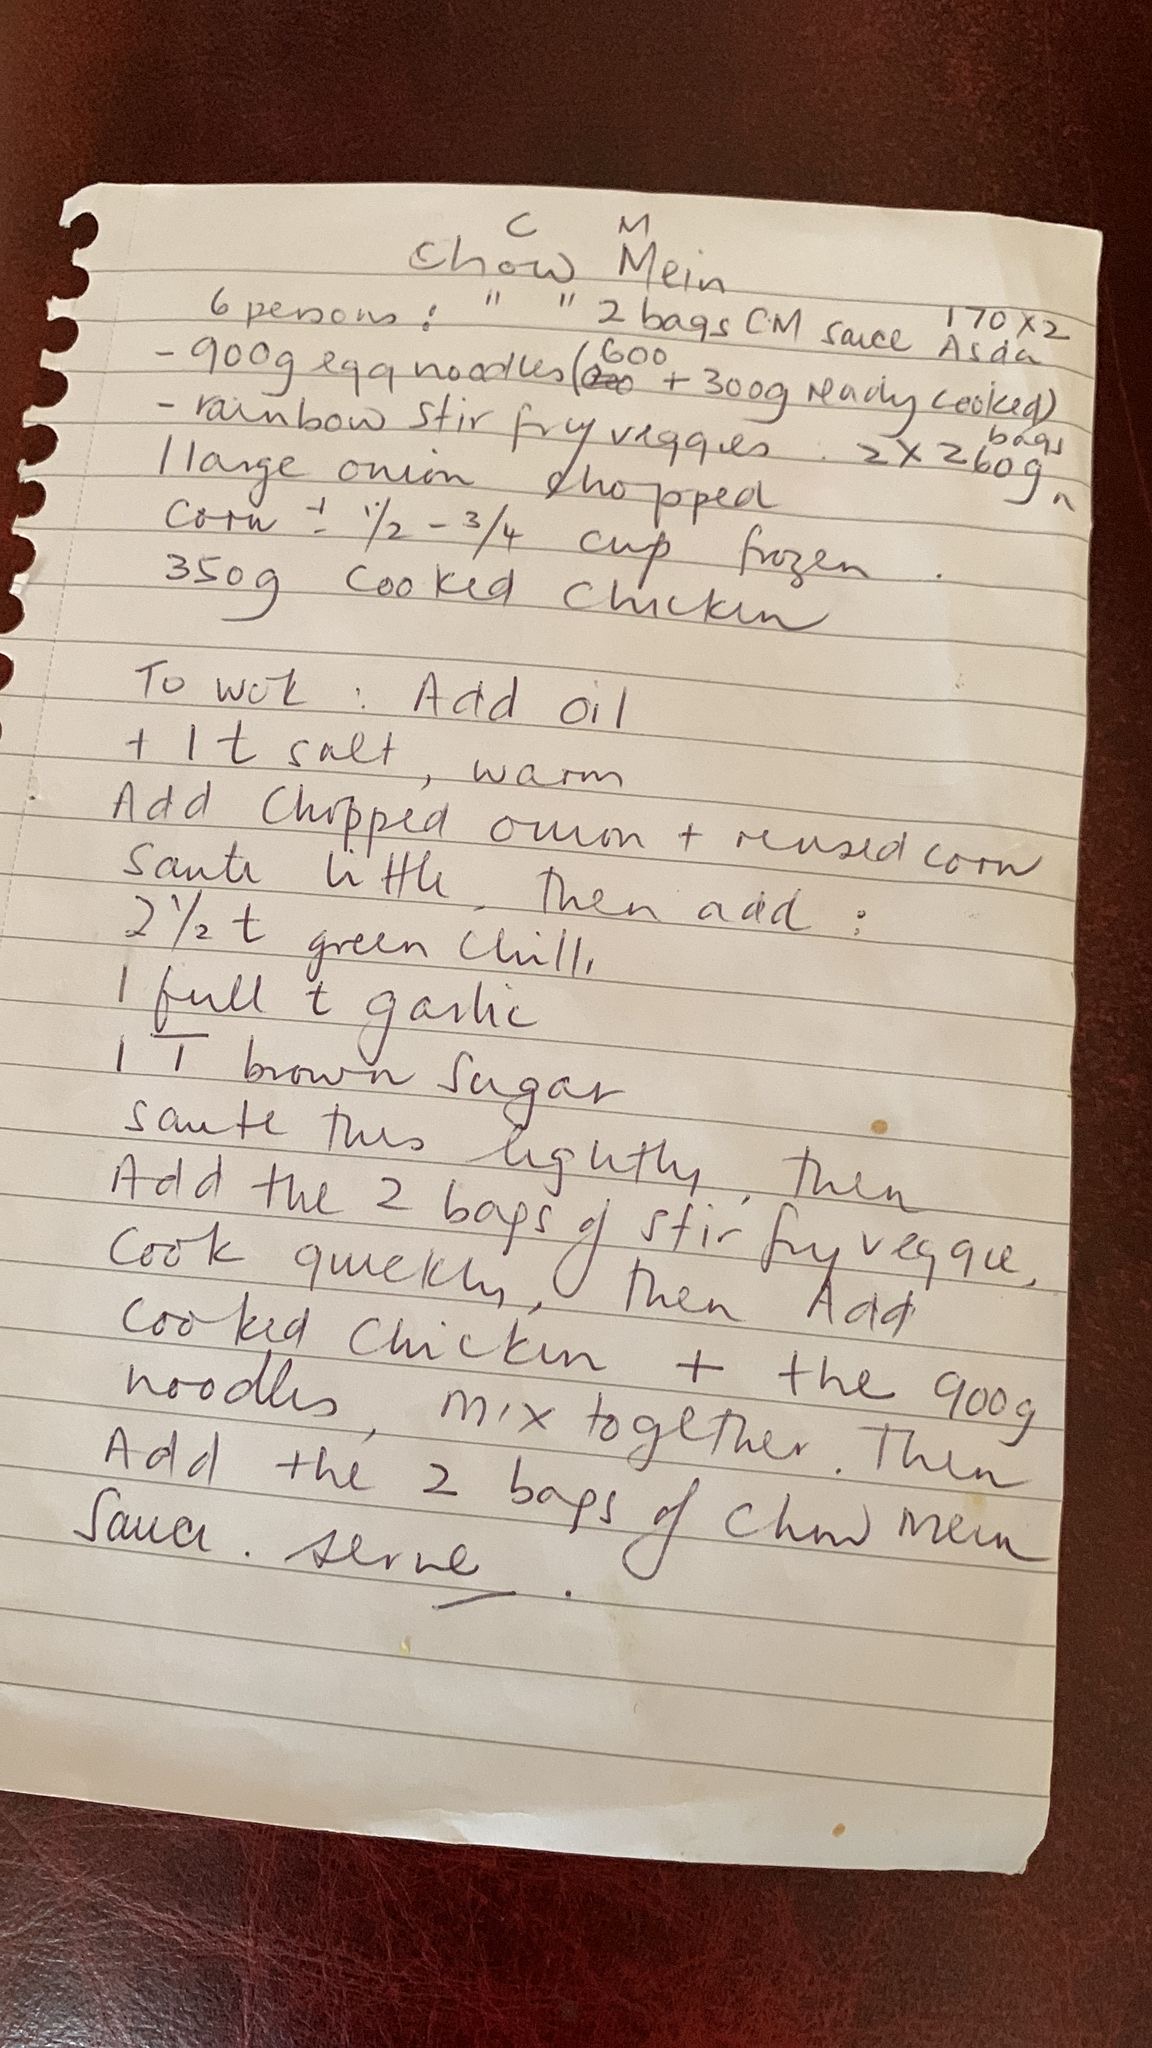 C M
Chow Mein
6 persons : " " 2 bags CM sauce Asda 170 x 2
- 900g egg noodles (600 + 300g ready cooked)
- rainbow stir fry veggies . 2 x 260g bags
1 large onion chopped
Corn ± 1/2 - 3/4 cup frozen .
350g cooked chicken
To wok : Add oil
+ 1 t salt, warm
Add Chopped onion + rinsed corn
Saute little, then add :
2 1/2 t green chilli
1 full t garlic
1 T brown sugar
Saute this lightly, then
Add the 2 bags of stir fry veggie,
Cook quickly, then Add
cooked chicken + the 900g
noodles, mix together. Then
Add the 2 bags of Chow mein
Sauce. serve .